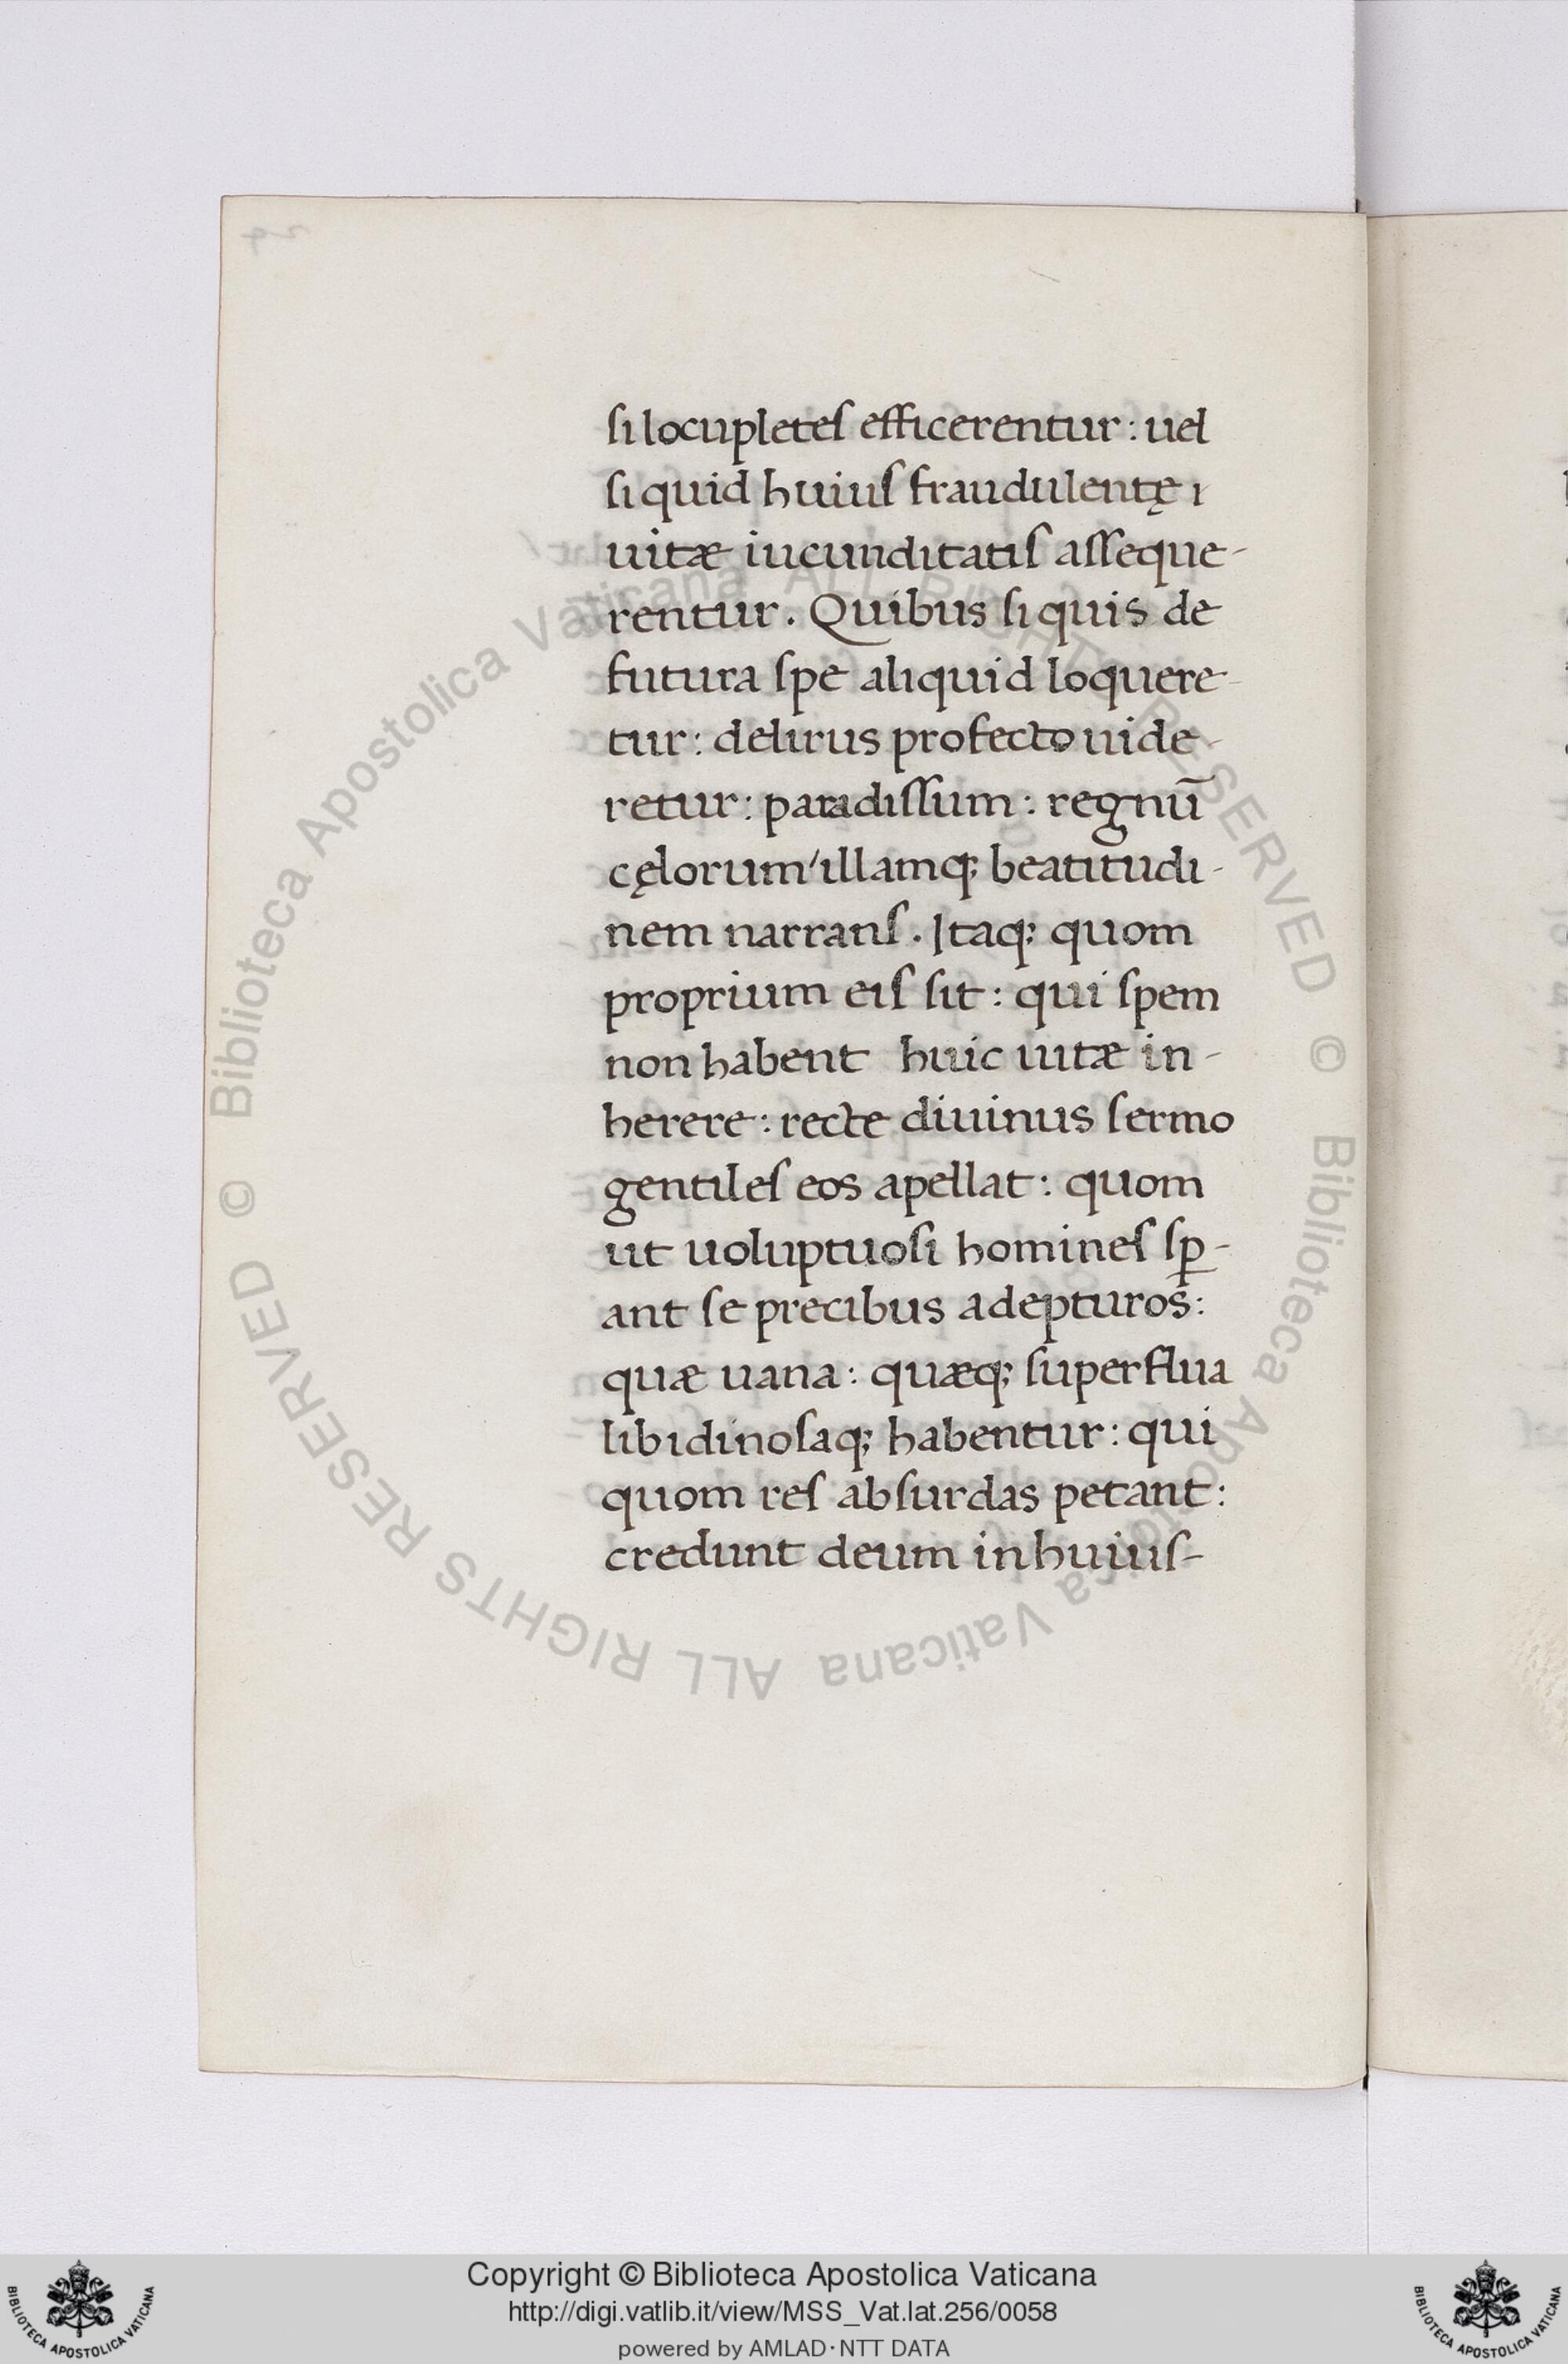 si locupletes efficerentur: uel
si quid huius fraudulentę ı
uitæ iucunditatis asseque-
rentur. Quibus si quis de
futura spe aliquid loquere-
tur: delirus profecto uide-
retur: paradissum: regnū
cęlorum/ illamq; beatitudi-
nem narrans. Itaq; quom
proprium eis sit: qui spem
non habent huic uitæ in-
herere: recte diuinus sermo
gentiles eos apellat: quom
ut uoluptuosi homines sꝑ-
ant se precibus adepturos:
quæ uana: quæq; superflua
libidinosaq; habentur: qui
quom res absurdas petant:
credunt deum in huius-
© Biblioteca Apostolica Vaticana ALL RIGHTS RESERVED
© Biblioteca Apostolica Vaticana ALL RIGHTS RESERVED
Copyright © Biblioteca Apostolica Vaticana
http://digi.vatlib.it/view/MSS_Vat.lat.256/0058
powered by AMLAD·NTT DATA
BIBLIOTECA APOSTOLICA VATICANA
BIBLIOTECA APOSTOLICA VATICANA